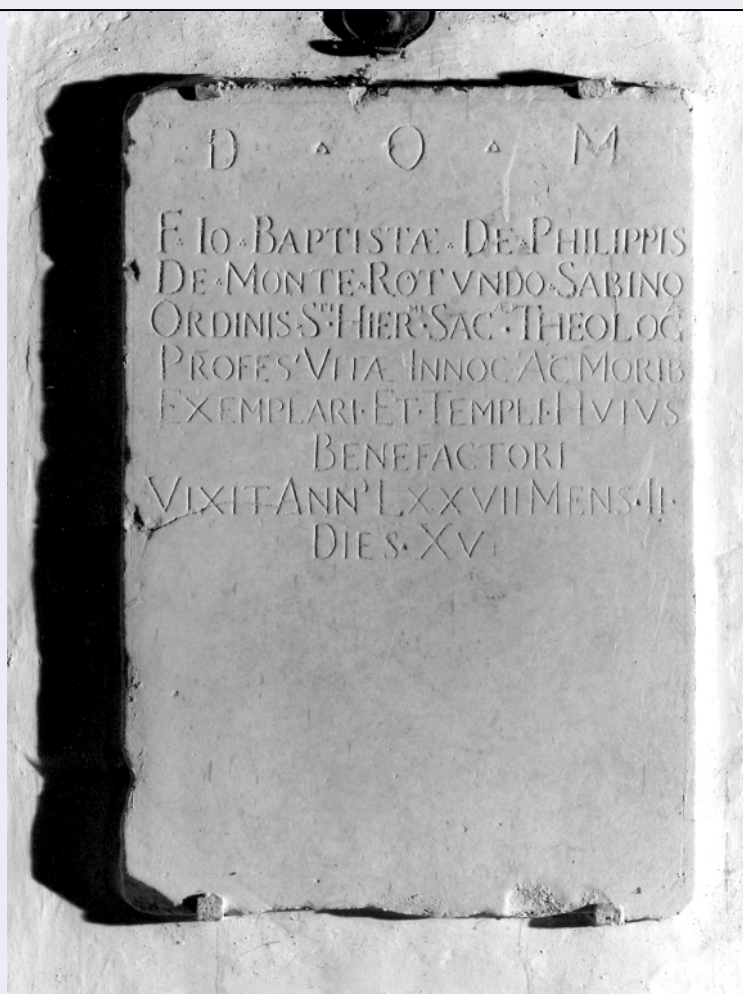 D · O · M
F· IO · BAPTISTÆ · DE · PHILIPPIS
DE · MONTE · ROTVNDO · SABINO
ORDINIS · S^TI · HIER^MI · SAC^· THEOLOG
PROFES' VITÆ INNOC' AC MORIB
EXEMPLARI · ET · TEMPLI · HVIVS
BENEFACTORI
VIXIT ANN' LXXVII MENS · II ·
DIES · XV